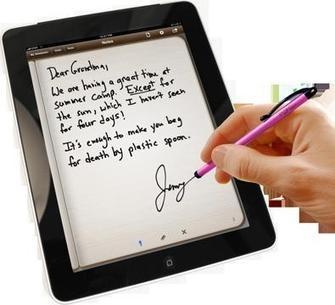 Dear Grandma,
We are having a great time at
summer camp. Except for
the sun, which I haven't seen
for four days!
It's enough to make you beg
for death by plastic spoon.
Jenny